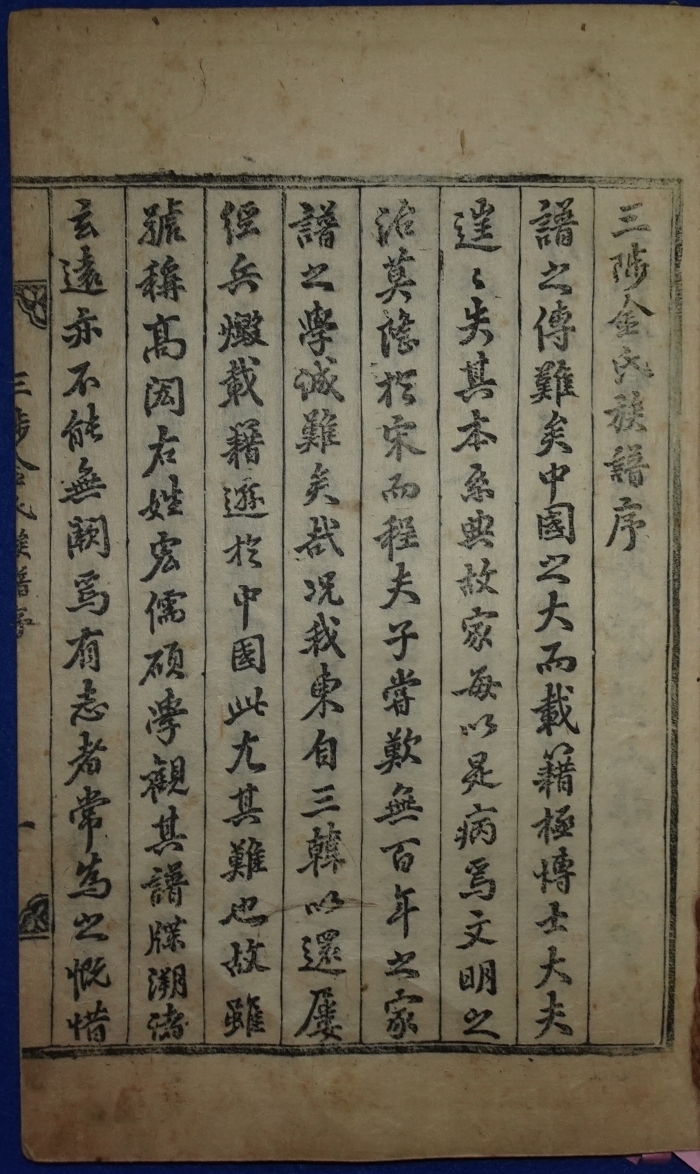 三陟金氏族譜序
譜之傳難矣中國之大而載籍極博士大夫
違〻失其本系典故家每以是病焉文明之
治莫隆於宋而程夫子嘗歎無百年之家
譜之學誠難矣哉況我東自三韓以還屢
經兵燹載籍遜於中國此尤其難也故雖
號稱高閎右姓宏儒碩學觀其譜牒溯
玄遠亦不能無闕焉有志者常為之慨惜
三陟金氏族譜序
一